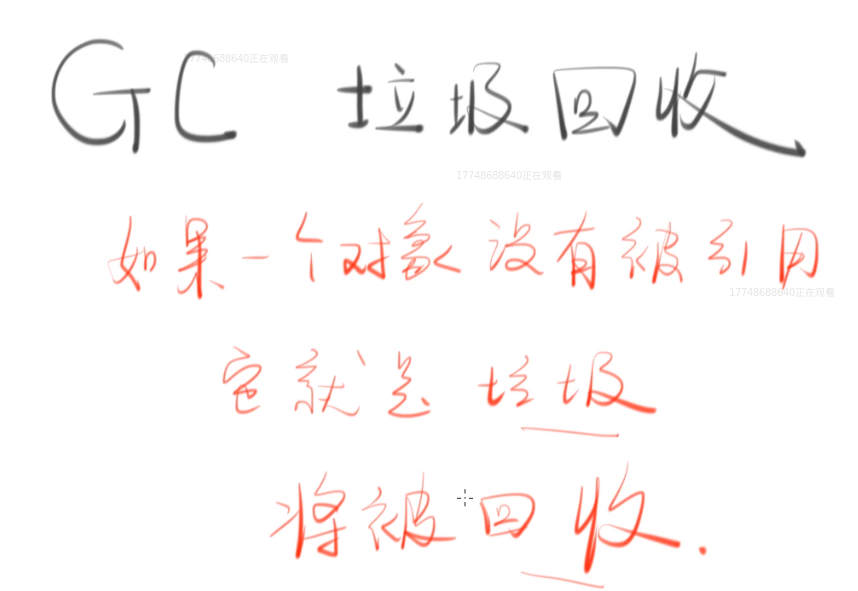 GC 垃圾回收
17748688640正在观看
17748688640正在观看
如果一个对象没有被引用
17748688640正在观看
它就是垃圾
将被回收.